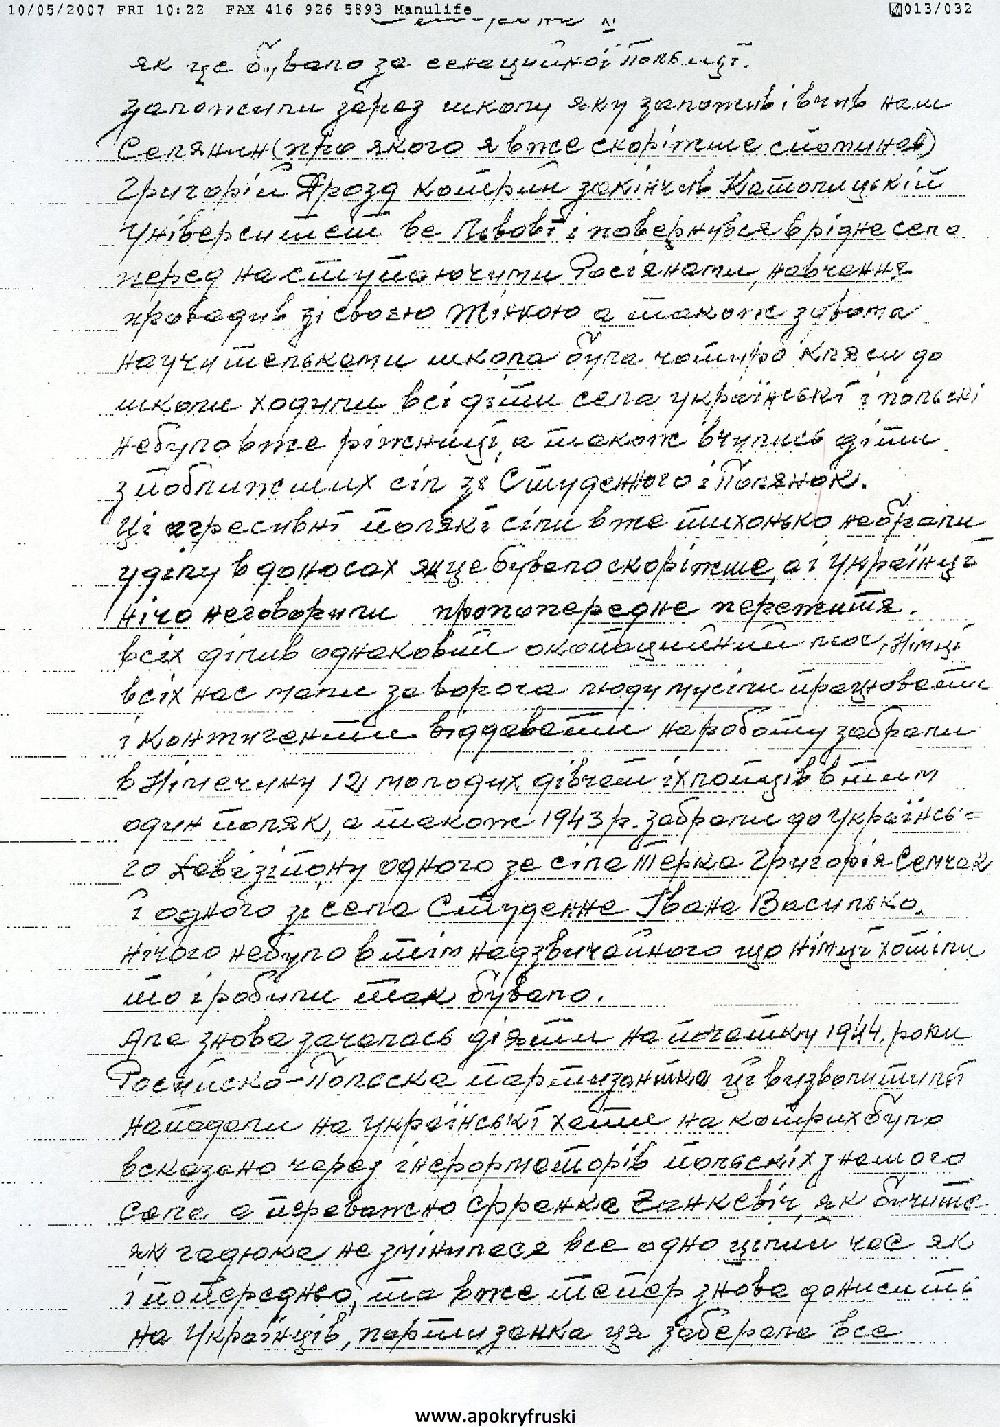 10/05/2007 FRI 10:22 FAX 416 926 5893 Manulife 013/032
як це бувало за сенаційної Польщі.
Заложили зараз школу яку заложив і вчив наш
Селянин (про якого я вже скоріжше споминав)
Григорій Дрозд котрий закінчив Католицькій
Університет ве Львові і повернувся в рідне село
перед наступаючими Росіянами, навчання
провадив зі своєю жінкою а також з двома
научительками школа була чотиро клясн до
школи ходили всі діти села українські і польскі
небуло вже ріжниці, а також вчились діти
з поближших сіл зі Студенного і Полянок.
Ці агресивні полякі сіли вже тихонько небрали
уділу в доносах як це бувало скоріжше, а і Українці
нічо неговорили про попередне пережиття.
всіх ділив однаковий окопаційний час, Німці
всіх нас мали за ворога люди мусіли працювати
і Контигенти віддавати на роботу забрали
в Німечину 12 молодих дівчат і хлопців в тим
один поляк, а також 1943 р. забрали до Українсь=
го Давізійону одного зе сіла Терка Григорія Семчак
і одного зі села Студенне Івана Василько.
нічого небуло в тім надзвичайного що німці хотіли
то і робили так бувало.
Але знова зачалась діяти на початку 1944 роки
Росийско-Полска партизантка ці визволитилі
нападали на українські хати на котрих було
всказано через інформаторів польскіх з нашого
села а переважно Франка Ганкевіч, як бичите
як гадюка не змінилася все одно цілий час як
і попередньо, та вже тепер знова доносить
на Українців, партизанка ця заберала все
www.apokryfruski